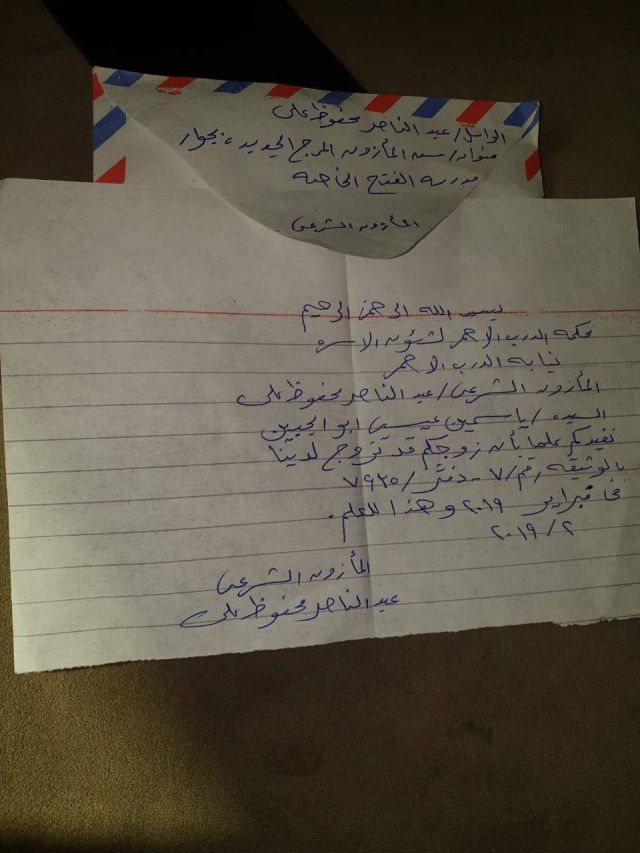 الراسل / عبد الناصر محفوظ على
عنوانه / سنه المأزون المرج الجديده ، بجوار
مدرسه الفتح الخاصه
المأزون الشرعى
بسم الله الرحمن الرحيم
محكمه الدرب الاحمر لشئون الاسره
نيابه الدرب الاحمر
المأزون الشرعى / عبد الناصر محفوظ على
السيده / ياسمين عيسى ابو اليزيد
نفيدكم علما بأن زوجكم قد تزوج لدينا
بالوثيقه رقم / ٧ - دفتر / ٧٩٣٥
فى فبراير ٢٠١٩ وهذا للعلم .
٢ / ٢٠١٩
المأزون الشرعى
عبد الناصر محفوظ على